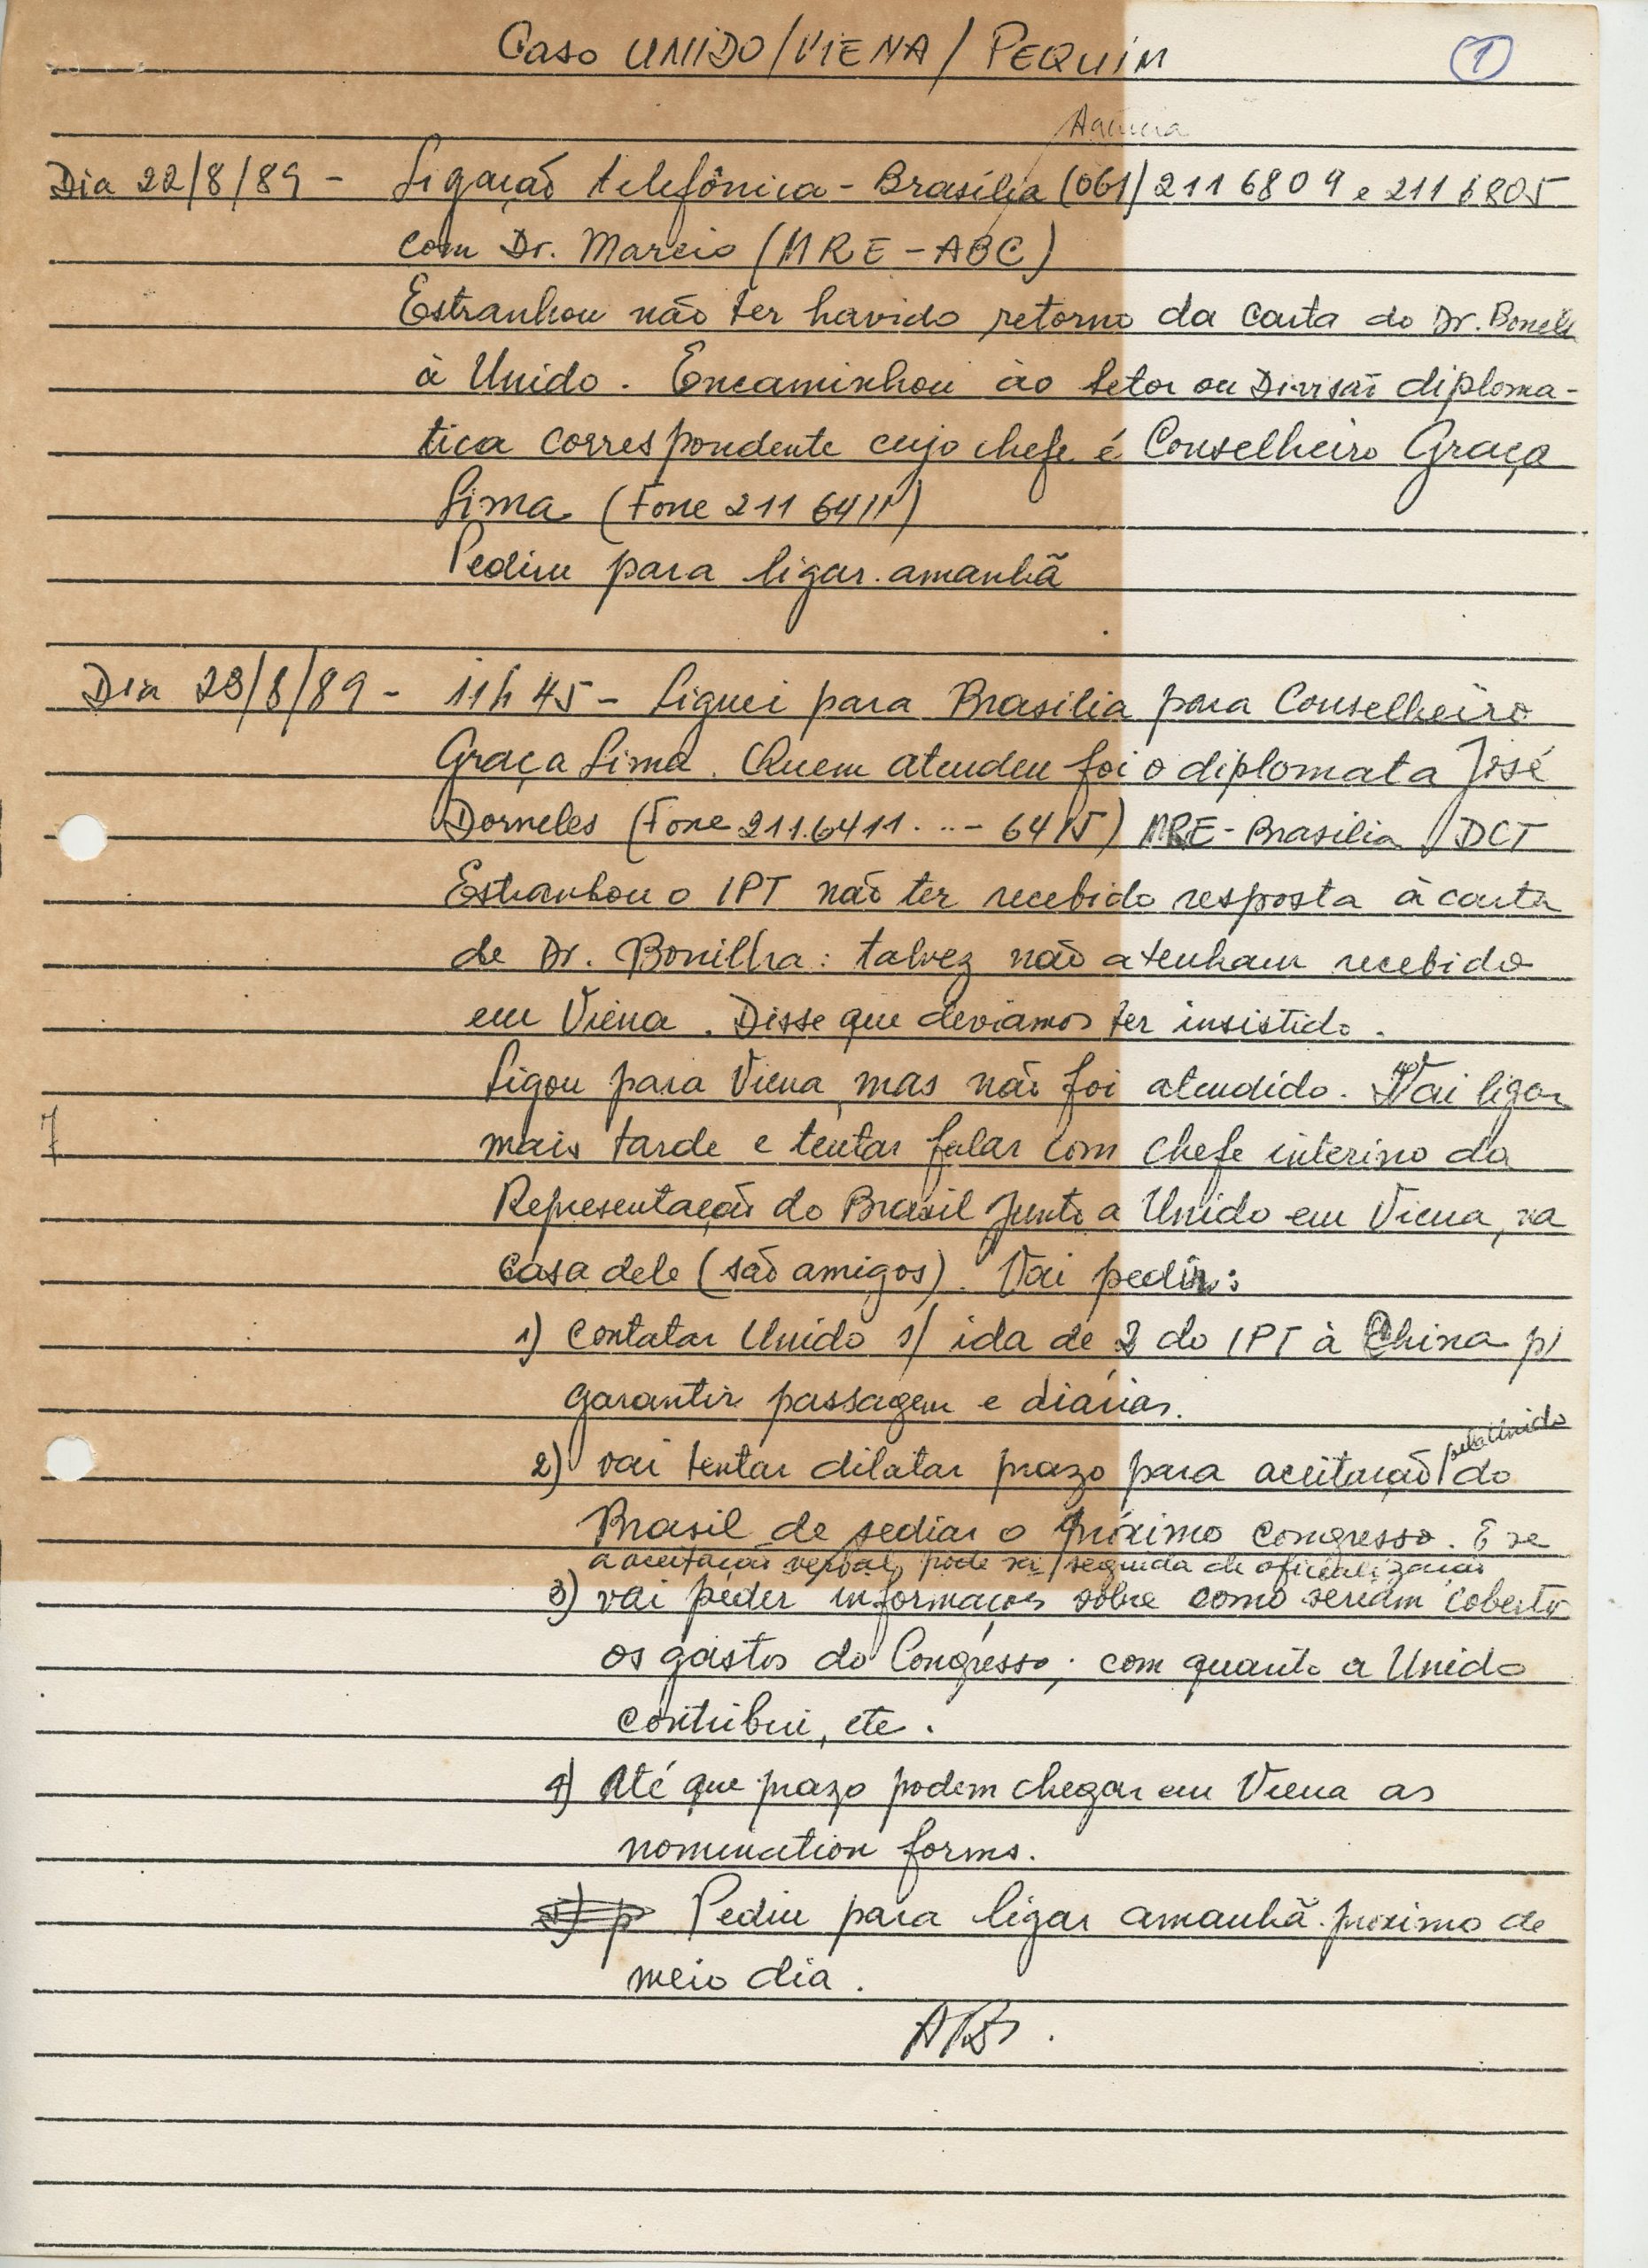 Caso UNIDO/VIENA/PEQUIM
1
Agência
Dia 22/8/89 - Ligação telefônica - Brasília (061) 2116809 e 2116805
com Dr. Marcio (MRE-ABC)
Estranhou não ter havido retorno da carta do Dr.
à Unido. Encaminhou ao Setor ou Divisão diploma-
tica correspondente cujo chefe é Conselheiro Graça
Lima (Fone 211 6411)
Pediu para ligar amanhã
Dia 23/8/89 - 11h45 - Liguei para Brasilia para Conselheiro
Graça Lima. Quem atendeu foi o diplomata José
Dorneles (Fone 211.6411...- 6415) MRE-Brasilia /DCT
Estranhou o IPT não ter recebido resposta à carta
de Dr. Bonilha: talvez não a tenham recebido
em Viena. Disse que deviamos ter insistido.
Ligou para Viena, mas não foi atendido. Vai ligar
mais tarde e tentar falar com chefe interino da
Representação do Brasil junto a Unido em Viena, na
casa dele (são amigos). Vai pedir:
1) Contatar Unido s/ ida de 2 do IPT à China p/
garantir passagem e diárias.
pela Unido
2) vai tentar dilatar prazo para aceitação do
Brasil de sediar o próximo congresso. E se
a aceitação verbal, pode ser seguida de oficialização
3) vai peder informaçoes sobre como seriam coberto
os gastos do Congresso; com quanto a Unido
contribui, etc.
4) Até que prazo podem chegar em Viena as
nomination forms.
Pediu para ligar amanhã proximo de
meio dia.